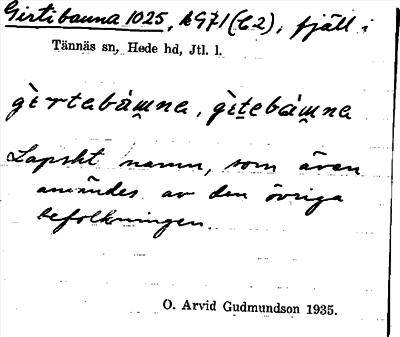 Girtibauna 1025, k971(C2), fjäll i
Tännäs sn, Hede hd, Jtl. l.
gèrtabáu̯na, gèt̯ebáu̯na
Lapskt namn, som även
användes av den övriga
befolkningen.
O. Arvid Gudmundson 1935.